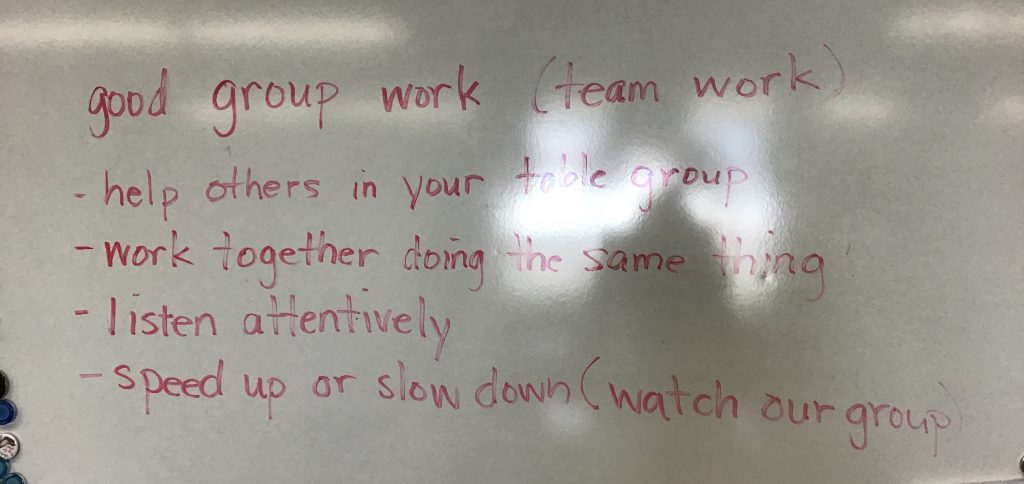 good group work (team work)
- help others in your table group
- work together doing the same thing
- listen attentively
- speed up or slow down (watch our group)